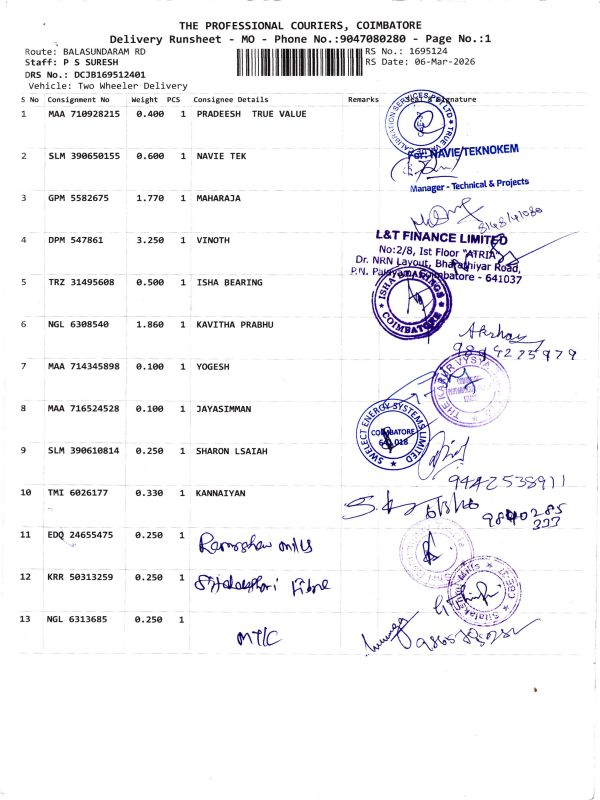 THE PROFESSIONAL COURIERS, COIMBATORE
Delivery Runsheet - MO - Phone No.:9047080280 - Page No.:1
Route: BALASUNDARAM RD
RS No.: 1695124
Staff: P S SURESH
RS Date: 06-Mar-2026
DRS No.: DCJB169512401
Vehicle: Two Wheeler Delivery
S No Consignment No Weight PCS Consignee Details Remarks Seal & Signature
1 MAA 710928215 0.400 1 PRADEESH TRUE VALUE
2 SLM 390650155 0.600 1 NAVIE TEK
For NAVIE TEKNOKEM
Manager - Technical & Projects
3 GPM 5582675 1.770 1 MAHARAJA
4 DPM 547861 3.250 1 VINOTH
L&T FINANCE LIMITED
No:2/8, Ist Floor "ATRIA"
Dr. NRN Layout, Bharathiyar Road,
P.N. Palayam, Coimbatore - 641037
5 TRZ 31495608 0.500 1 ISHA BEARING
ISHA BEARINGS
COIMBATORE
6 NGL 6308540 1.860 1 KAVITHA PRABHU
Akshay
7 MAA 714345898 0.100 1 YOGESH
THE KARUR VYSYA
8 MAA 716524528 0.100 1 JAYASIMMAN
SWELECT ENERGY SYSTEMS LIMITED
COIMBATORE
641 018
9 SLM 390610814 0.250 1 SHARON LSAIAH
9442538911
10 TMI 6026177 0.330 1 KANNAIYAN
11 EDQ 24655475 0.250 1
12 KRR 50313259 0.250 1
13 NGL 6313685 0.250 1
MTC